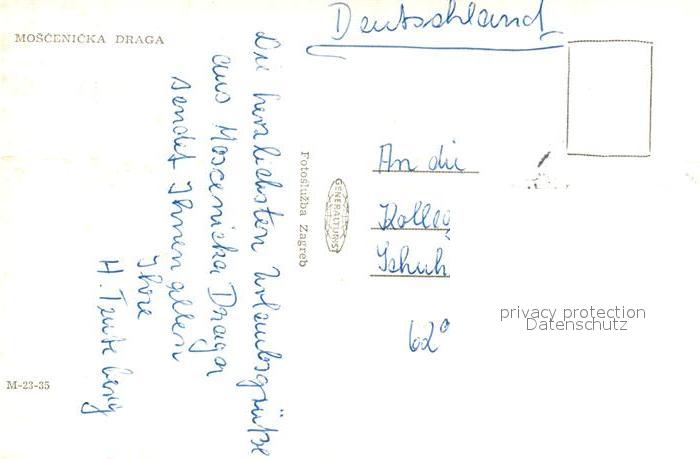 MOŠĆENIČKA DRAGA
Die herzlichsten Urlaubsgrüße
aus Moscenicka Draga
sendet Ihnen allen
Ihre
H.
M-23-35
Fotoslužba Zagreb
GENERALTURIST
Deutschland
An die
Kolleg
Schuh
62°
privacy protection
Datenschutz